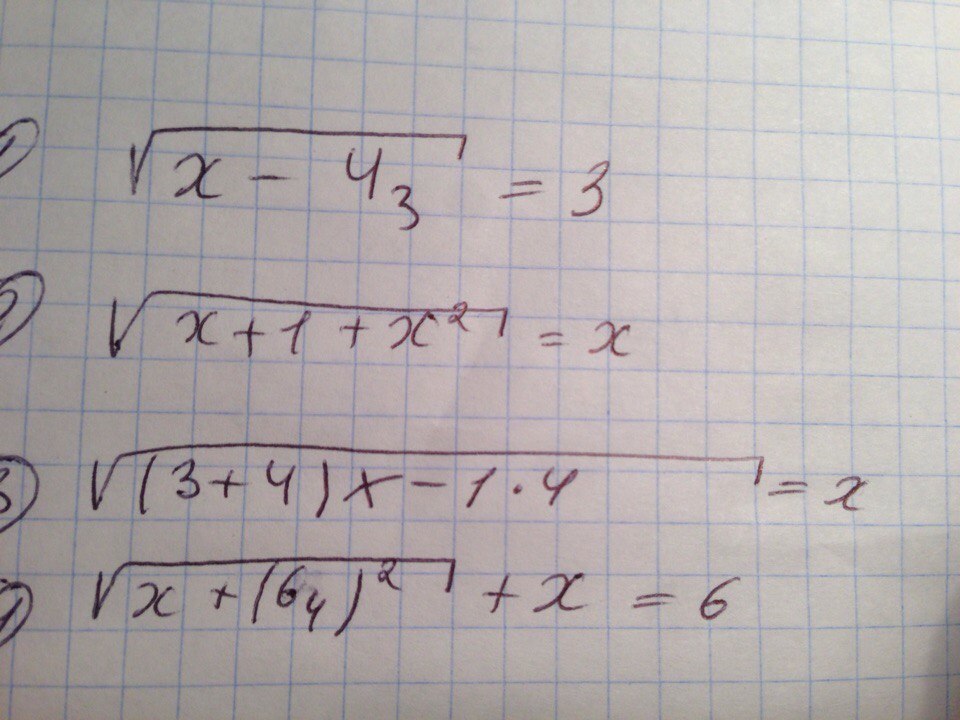 √(x - 4₃) = 3
√(x + 1 + x²) = x
3) √((3+4)x - 1·4) = x
√(x + (6₄)²) + x = 6